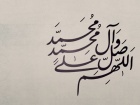 اللهم صل علی
محمد وآل محمد